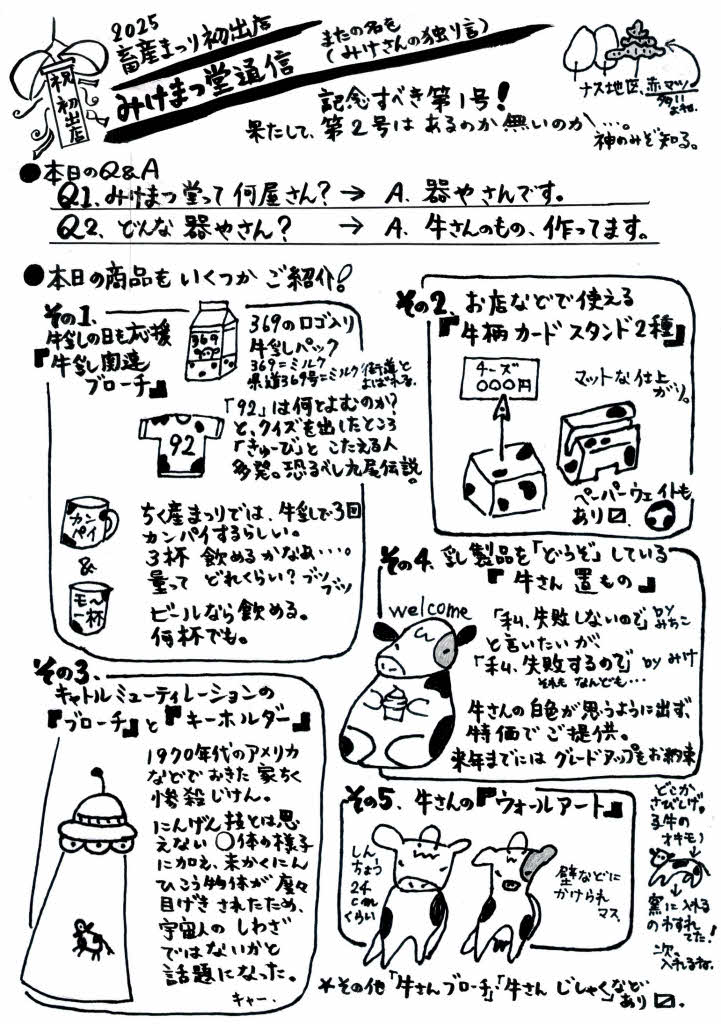 2025
畜産まつり初出店
またの名を
(みけさんの独り言)
みけまつ堂通信
祝初出店
記念すべき第1号!
果たして、第2号はあるのか無いのか…。
神のみぞ知る。
ナス地区、赤マツ
多いよね。
●本日のQ&A
Q1、みけまつ堂って何屋さん?→ A. 器やさんです。
Q2、どんな器やさん? → A. 牛さんのもの、作ってます。
●本日の商品もいくつかご紹介!
その1、
牛乳の日も応援
『牛乳関連
ブローチ』
369
369のロゴ入り
牛乳パック
369=ミルク
県道369号=ミルク街道と
よばれる。
92
「92」は何とよむのか?
と、クイズを出したところ
「きゅーび」とこたえる人
多発。恐るべし九尾伝説。
カン
パイ
&
モ〜
一杯
ちく産まつりでは、牛乳で3回
カンパイするらしい。
3杯 飲めるかなぁ…。
量って どれくらい?ブツ
ブツ
ビールなら飲める。
何杯でも。
その2、お店などで使える
『牛柄カードスタンド2種』
チーズ
〇〇〇円
マットな仕上
がり。
ペーパーウェイトも
あり〼。
その3、
キャトルミューティレーションの
『ブローチ』と『キーホルダー』
1970年代のアメリカ
などでおきた家ちく
惨殺じけん。
にんげん技とは思
えない〇体の様子
に加え、未かくにん
ひこう物体が度々
目げきされたため、
宇宙人のしわざ
ではないかと
話題になった。
キャー.
その4、乳製品を「どうぞ」している
『牛さん置もの』
welcome
「私、失敗しないので」byみちこ
と言いたいが、
「私、失敗するので」byみけ
それもなんども…
牛さんの白色が思うように出ず、
特価でご提供。
来年までにはグレードアップもお約束
その5、牛さんの『ウォールアート』
しん
ちょう
24
cm
くらい
壁などに
かけられ
マス.
どこか
さびしげ。
る牛の
オキモノ
窯に入れる
のわすれ
てた!
次、
入れるね。
*その他「牛さんブローチ」「牛さんじしゃく」など
あり〼.